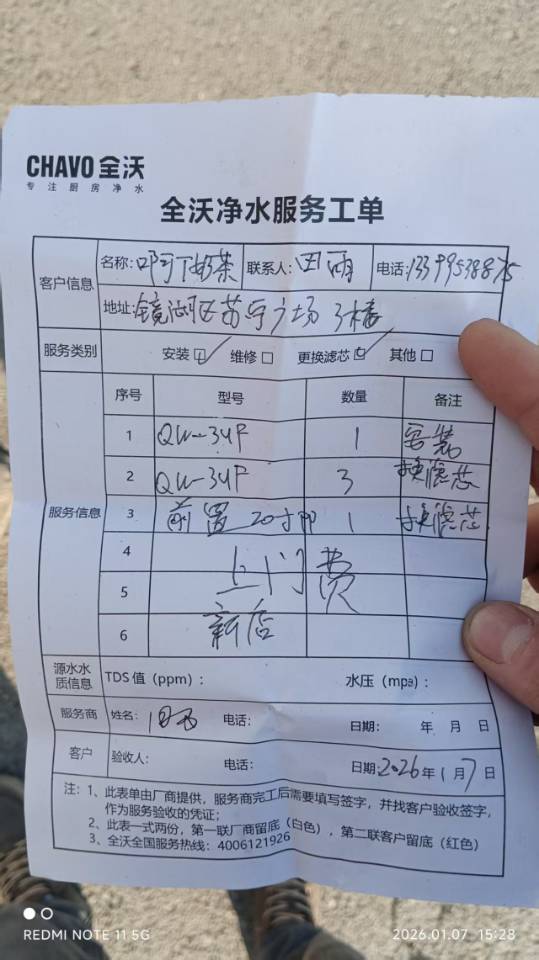 CHAVO 全沃
专注厨房净水
全沃净水服务工单
客户信息 名称: 啊T奶茶 联系人: 田雨 电话: 13399538875
地址: 镜湖区苏宁广场 3楼
服务类别 安装☑ 维修□ 更换滤芯☑ 其他□
服务信息 序号 型号 数量 备注
1 QW-34F 1 安装
2 QW-34F 3 换滤芯
3 前置 20寸 1 换滤芯
4 上门费
5
6 新店
源水水质信息 TDS 值 (ppm): 水压 (mpa):
服务商 姓名: 电话: 日期: 年 月 日
客户 验收人: 电话: 日期: 2026年1月7日
注: 1、此表单由厂商提供,服务商完工后需要填写签字,并找客户验收签字,
作为服务验收的凭证;
2、此表一式两份,第一联厂商留底(白色),第二联客户留底(红色)
3、全沃全国服务热线: 4006121926
REDMI NOTE 11 5G
2026.01.07 15:28